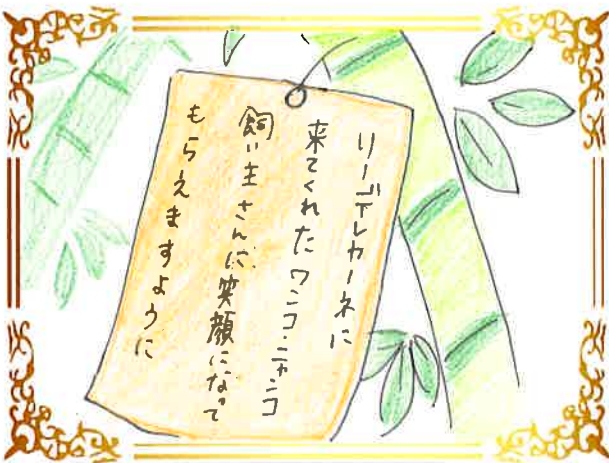 リーデレカーネに
来てくれたワンコ・ニャンコ
飼い主さんに笑顔になって
もらえますように